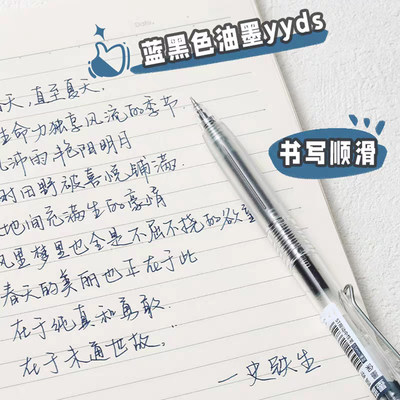 蓝黑色油墨yyds
书写顺滑
天,直至夏天.
生命力独享风流的季节
风沛的艳阳明月
时田野被喜悦铺满.
地间充满生的豪情
风里梦里也全是不屈不挠的欲望
春天的美丽也正在于此
在于纯真和勇敢.
在于未通世故...
—史铁生